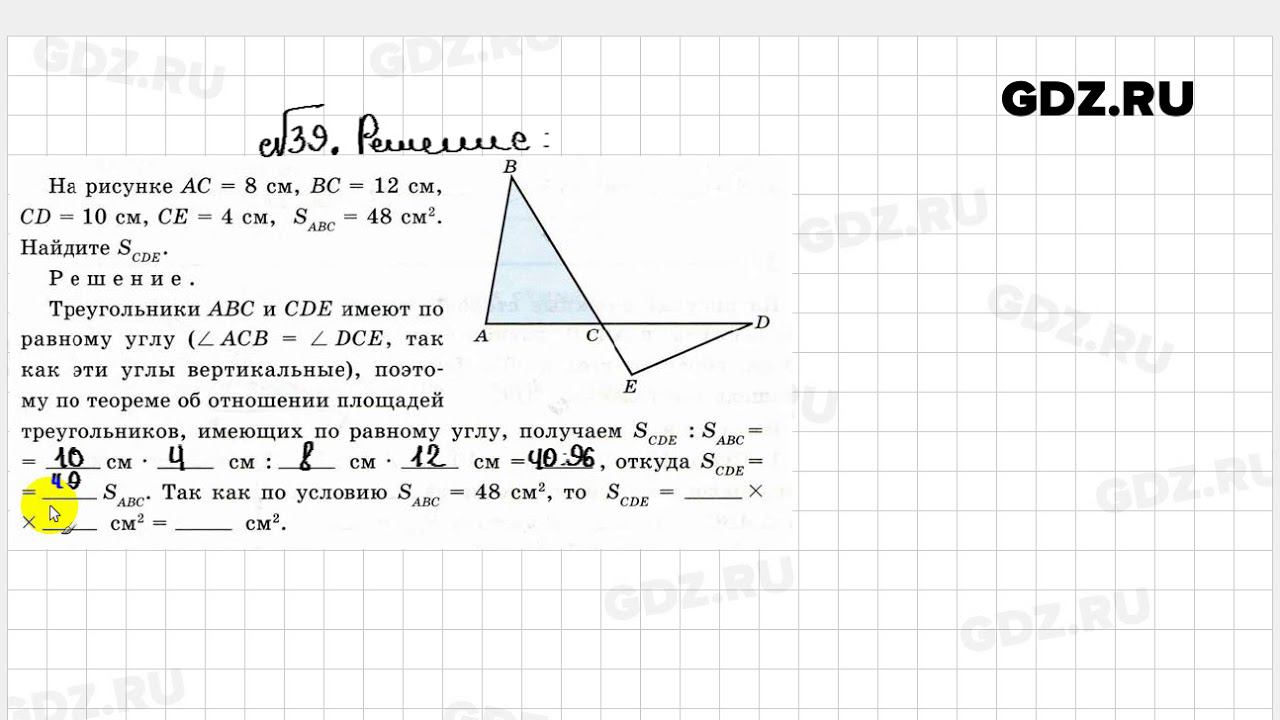 GDZ.RU
GDZ.RU
GDZ.RU
№39. Решение:
На рисунке AC = 8 см, BC = 12 см,
CD = 10 см, CE = 4 см, S_ABC = 48 см².
Найдите S_CDE.
Решение.
Треугольники ABC и CDE имеют по
равному углу (∠ ACB = ∠ DCE, так
как эти углы вертикальные), поэто-
му по теореме об отношении площадей
треугольников, имеющих по равному углу, получаем S_CDE : S_ABC =
= 10 см · 4 см : 8 см · 12 см = 40:96, откуда S_CDE =
= 40 S_ABC. Так как по условию S_ABC = 48 см², то S_CDE = ____ ×
× ____ см² = ____ см².
B
A
C
D
E
GDZ.RU
GDZ.RU
GDZ.RU
GDZ.RU
GDZ.RU
GDZ.RU